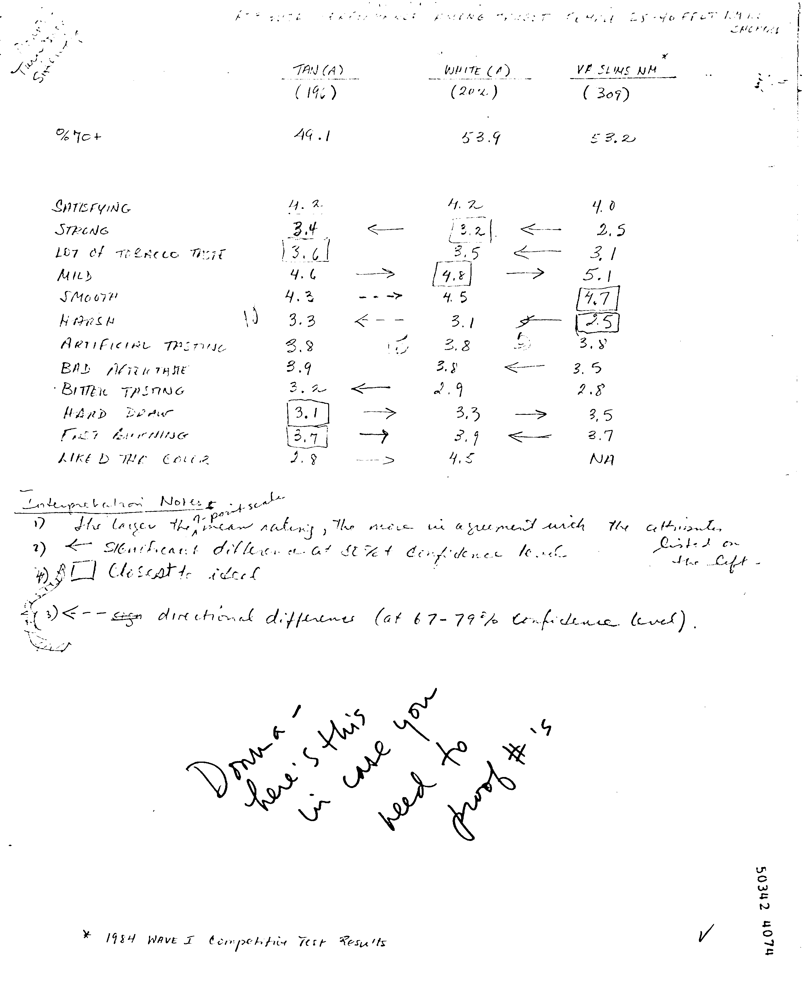 AMONG TARGET FEMALE 25-40 FFLT
SMOKERS
TAN (A) WHITE (A) VF SLIMS NM *
(196) (202) (309)
% 70+ 49.1 53.9 53.2
SATISFYING 4.2 4.2 4.0
STRONG 3.4 ← 3.2 ← 2.5
LOT OF TOBACCO TASTE 3.6 3.5 ← 3.1
MILD 4.6 → 4.8 → 5.1
SMOOTH 4.3 --→ 4.5 4.7
HARSH 3.3 ←-- 3.1 ← 2.5
ARTIFICIAL TASTING 3.8 3.8 3.8
BAD AFTERTASTE 3.9 3.8 ← 3.5
BITTER TASTING 3.2 ← 2.9 2.8
HARD DRAW 3.1 → 3.3 → 3.5
FAST BURNING 3.7 → 3.9 ← 3.7
LIKED THE COLOR 2.8 --→ 4.5 NA
Interpretation Notes:
1) the larger the 7-point scale mean rating, the more in agreement with the attributes
listed on
the left.
2) ← Significant difference at 80%+ confidence level
4) □ Closest to ideal
3) ←-- sign directional difference (at 67-79% confidence level).
Donna -
here's this
in case you
need to
proof #'s
* 1984 WAVE I Competitive Test Results
50342 4074